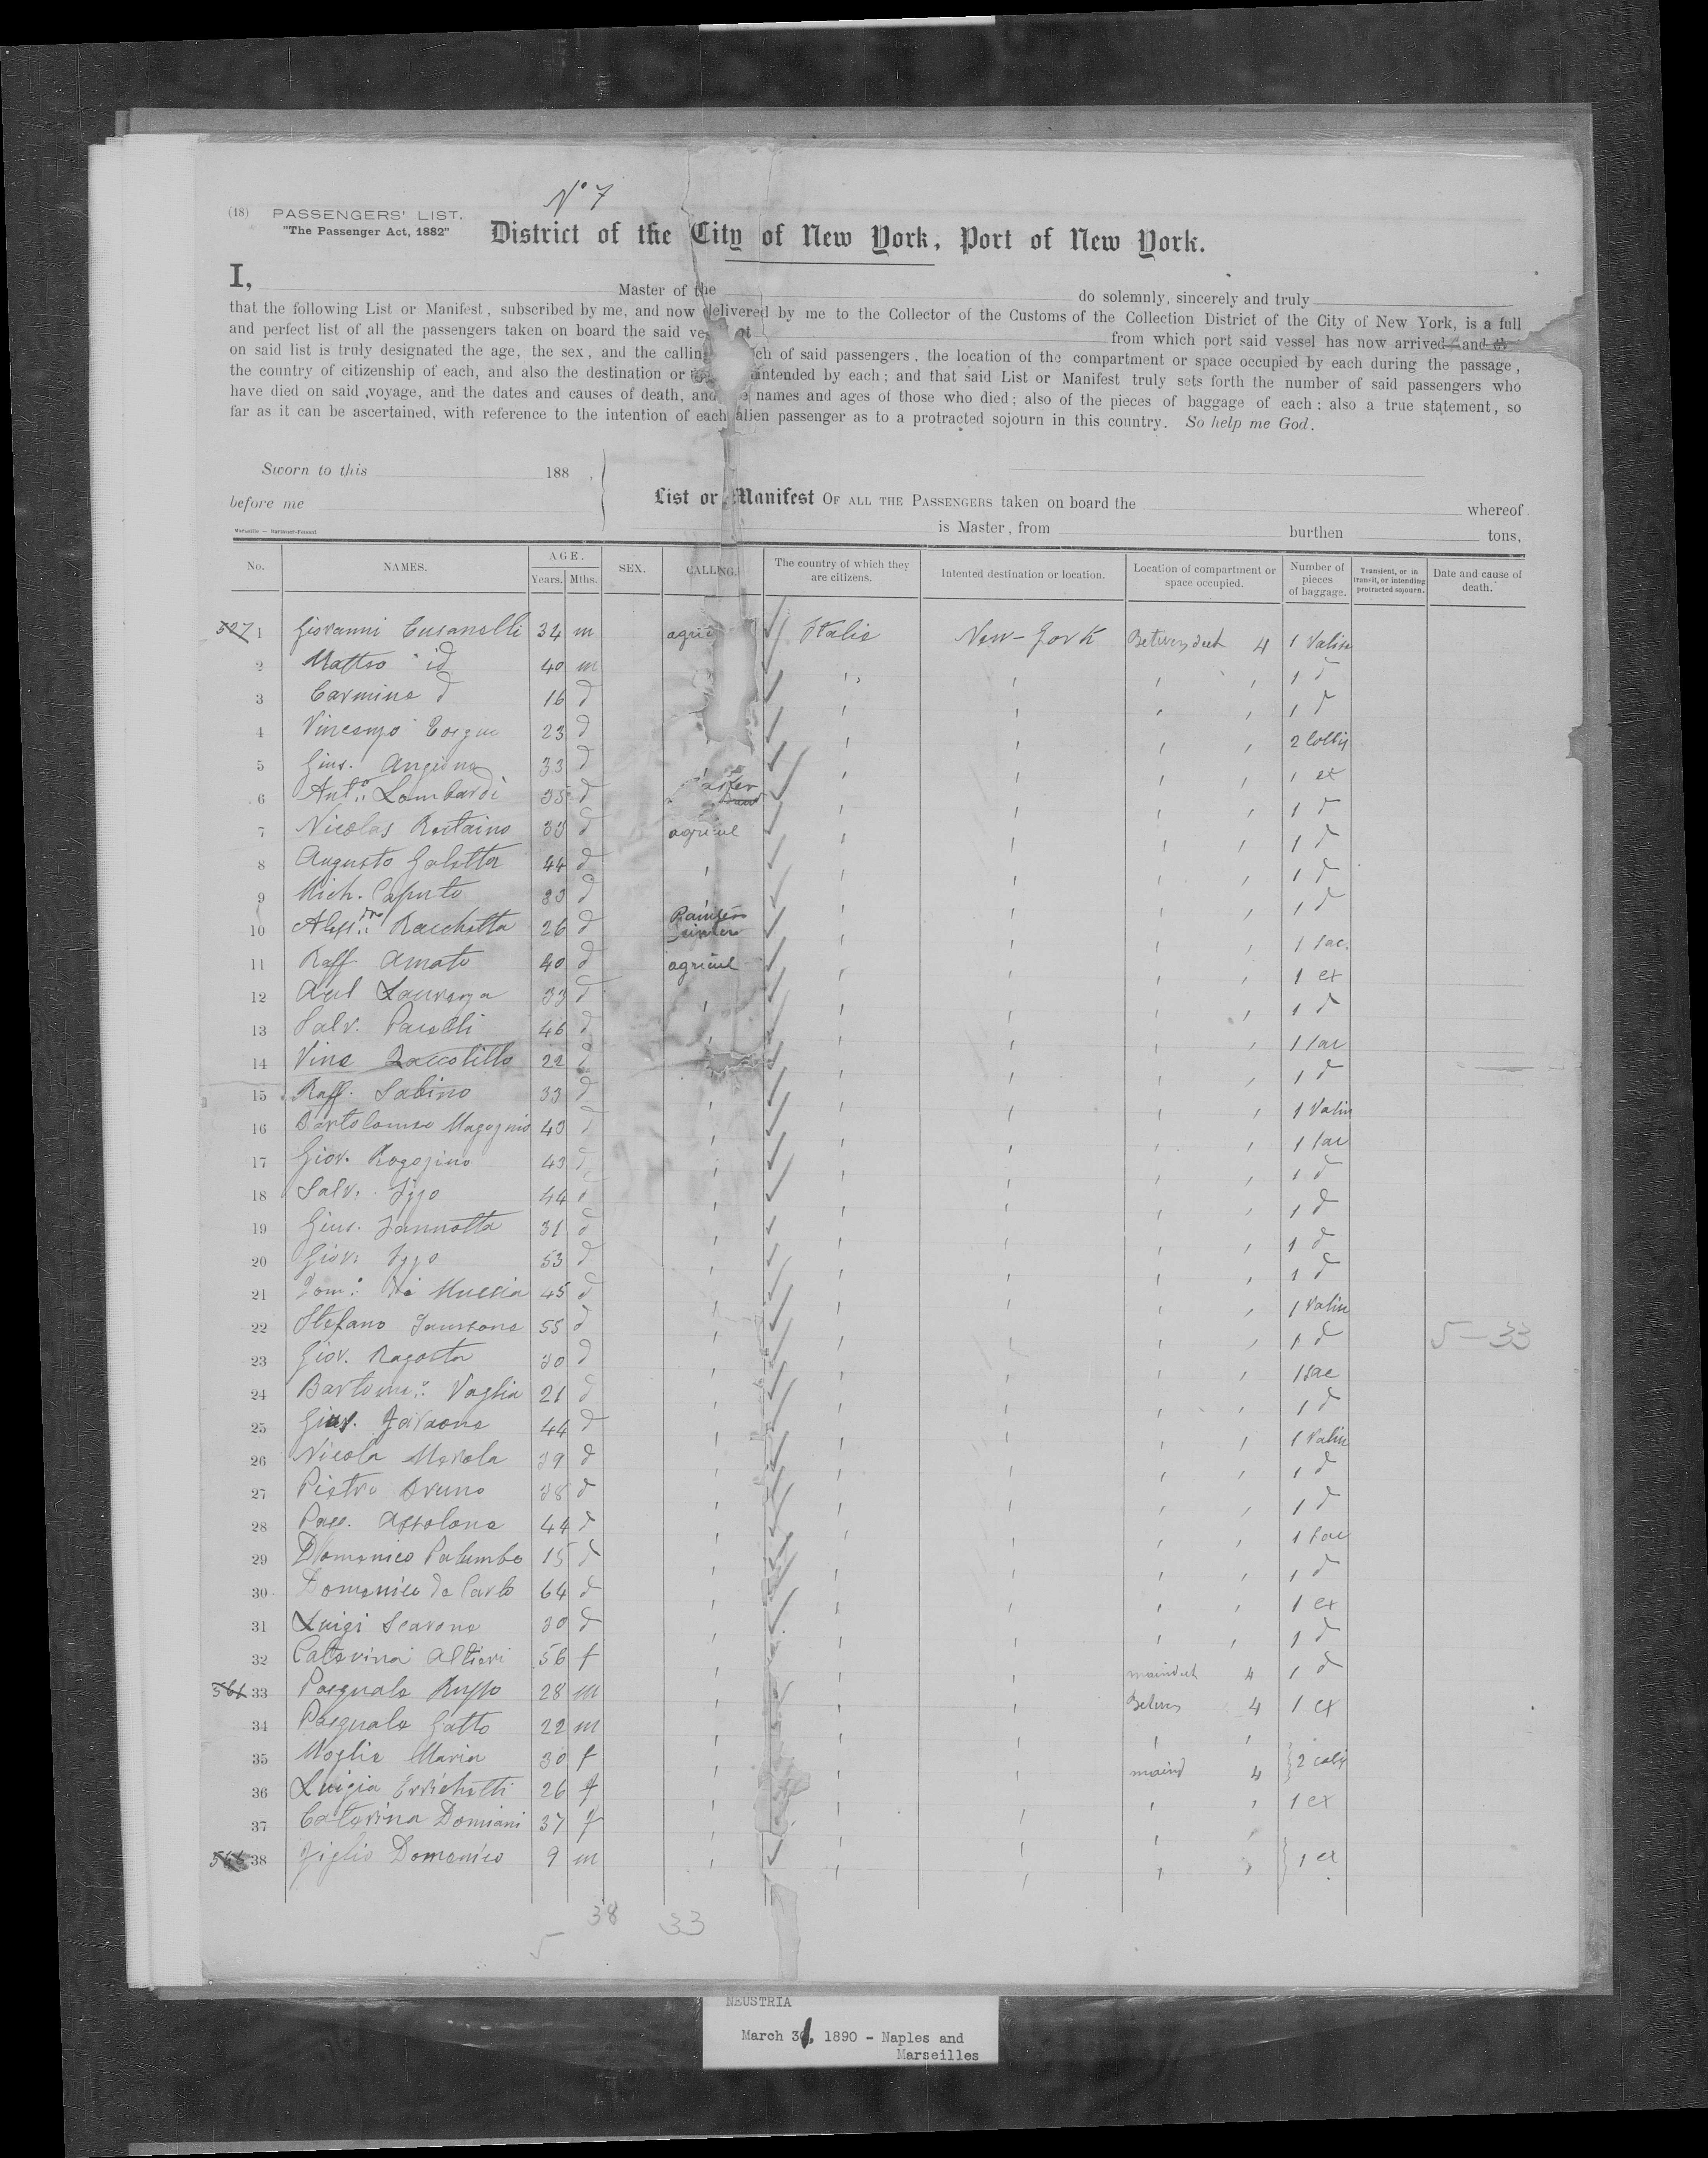 N° 7
(18) PASSENGERS' LIST.
"The Passenger Act, 1882"
District of the City of New York, Port of New York.
I, Master of the do solemnly, sincerely and truly
that the following List or Manifest, subscribed by me, and now delivered by me to the Collector of the Customs of the Collection District of the City of New York, is a full
and perfect list of all the passengers taken on board the said from which port said vessel has now arrived and
on said list is truly designated the age, the sex, and the calling of said passengers, the location of the compartment or space occupied by each during the passage,
the country of citizenship of each, and also the destination or intended by each; and that said List or Manifest truly sets forth the number of said passengers who
have died on said voyage, and the dates and causes of death, and names and ages of those who died; also of the pieces of baggage of each: also a true statement, so
far as it can be ascertained, with reference to the intention of each alien passenger as to a protracted sojourn in this country. So help me God.
Sworn to this 188 .
before me
List or Manifest OF ALL THE PASSENGERS taken on board the whereof
is Master, from burthen tons,
No. NAMES. AGE. Years. Mths. SEX. CALLING. The country of which they are citizens. Intented destination or location. Location of compartment or space occupied. Number of pieces of baggage. Transient, or in transit, or intending protracted sojourn. Date and cause of death.
527 1 Giovanni Cusanelli 34 m Italie New-York 4 1 Valise
2 Matteo id 40 m 1 d
3 Carmine d 16 d 1 d
4 Vincenzo 23 d 2 Collis
5 Gius. 33 d 1 ex
6 Ant.° Lombardi 35 d 1 d
7 Nicolas 33 d agricul 1 d
8 Augusto Galetta 44 d 1 d
9 Mich. Caputo 33 d 1 d
10 Racchetta 26 d 1 sac.
11 Raff. Amato 40 d agricul 1 ex
12 33 d 1 d
13 Salv. 46 d 1 sac
14 22 d 1 d
15 Raff. Sabino 33 d 1 Valise
16 Bartolomeo 43 d 1 sac
17 Giov. 43 d 1 d
18 Salv. Izzo 44 d 1 d
19 Gius. Iannotta 31 d 1 d
20 Giov. Izzo 53 d 1 d
21 Dom.° 45 d 1 Valise
22 Stefano 55 d 1 d 5 - 33
23 Giov. Ragosta 30 d 1 sac
24 Vaglia 21 d 1 d
25 Gius. 44 d 1 Valise
26 Nicola Merola 39 d 1 d
27 Pietro Bruno 38 d 1 d
28 44 d 1 sac
29 Domenico Palumbo 15 d 1 d
30 Domenico de Carlo 64 d 1 ex
31 Luigi Scarone 30 d 1 d
32 Caterina Altieri 56 f 4 1 d
561 33 Pasquale Russo 28 m 4 1 ex
34 Pasquale Gatto 22 m
35 Moglie Maria 30 f 4 2 colis
36 Luigia Errichetti 26 f 1 ex
37 Caterina Domiani 37 f
38 Figlio Domenico 9 m 1 ex
38 33
5
NEUSTRIA
March 31, 1890 - Naples and
Marseilles